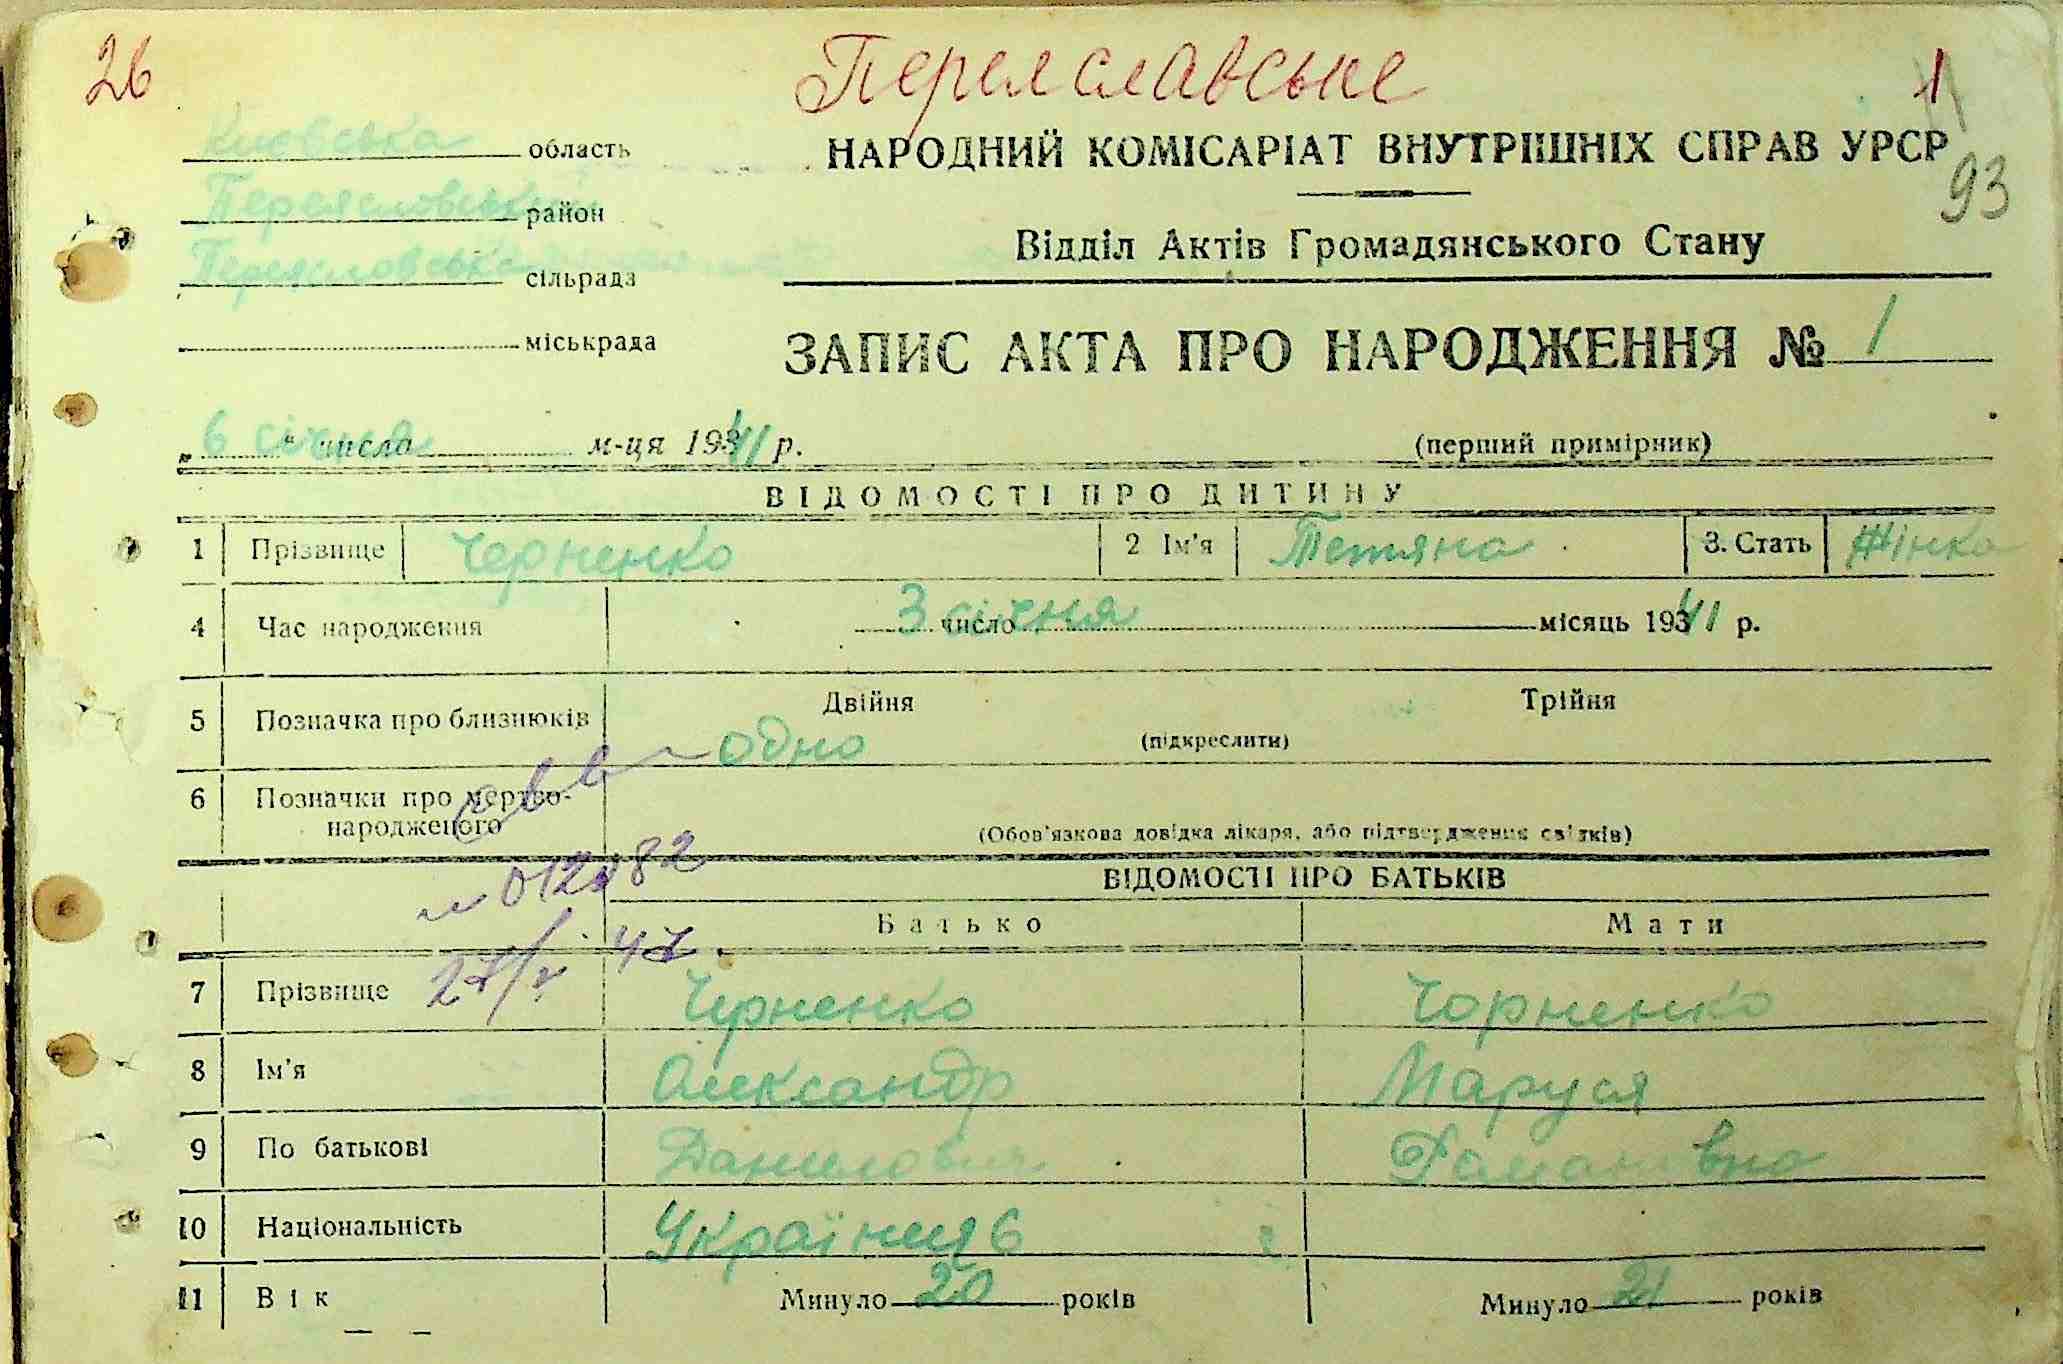 26 Переяславське 1
Київська область
НАРОДНИЙ КОМІСАРІАТ ВНУТРІШНІХ СПРАВ УРСР
93
Переясловський район
Відділ Актів Громадянського Стану
Переясловська сільрада
міськрада
ЗАПИС АКТА ПРО НАРОДЖЕННЯ № 1
„ 6 січня “ числа м-ця 1941 р. (перший примірник)
ВІДОМОСТІ ПРО ДИТИНУ
1 Прізвище Черненко 2 Ім'я Тетяна 3. Стать Жінка
4 Час народження 3 січня число місяць 1941 р.
5 Позначка про близнюків Двійня Трійня
одно (підкреслити)
6 Позначки про мертво-
народженого (Обов'язкова довідка лікаря, або підтвердження свідків)
№ 012082
ВІДОМОСТІ ПРО БАТЬКІВ
Батько Мати
27/V 47
7 Прізвище Черненко Чорненко
8 Ім'я Олександр Маруся
9 По батькові Данилович Романівна
10 Національність Українця
11 Вік Минуло 20 років Минуло 21 років